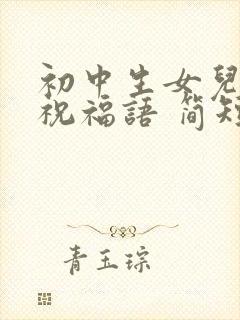 初中生女兒
祝福語 簡短
青玉琮